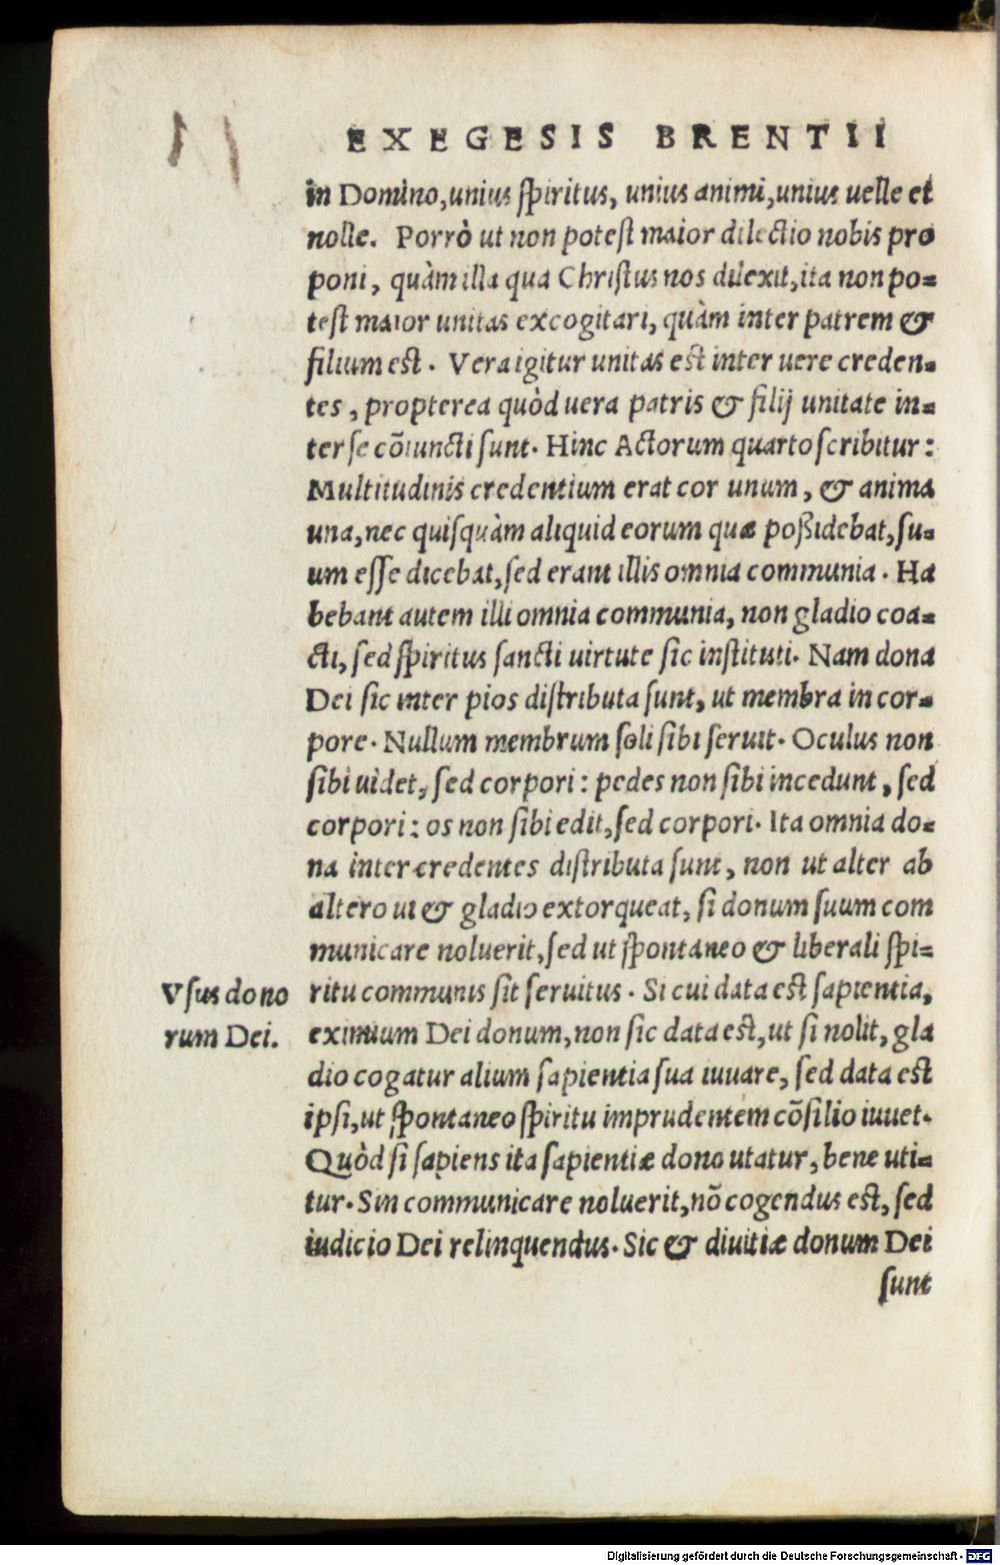 EXEGESIS BRENTII
in Domino, unius ſpiritus, unius animi, unius uelle et
nolle. Porrò ut non poteſt maior dilectio nobis pro
poni, quàm illa qua Chriſtus nos dilexit, ita non po=
teſt maior unitas excogitari, quàm inter patrem &
filium eſt. Vera igitur unitas eſt inter uere creden=
tes, propterea quòd uera patris & filij unitate in=
ter ſe cõiuncti ſunt. Hinc Actorum quarto ſcribitur:
Multitudinis credentium erat cor unum, & anima
una, nec quiſquàm aliquid eorum quæ poßidebat, ſu=
um eſſe dicebat, ſed erant illis omnia communia. Ha
bebant autem illi omnia communia, non gladio coa=
cti, ſed ſpiritus ſancti uirtute ſic inſtituti. Nam dona
Dei ſic inter pios diſtributa ſunt, ut membra in cor=
pore. Nullum membrum ſoli ſibi ſeruit. Oculus non
ſibi uidet, ſed corpori: pedes non ſibi incedunt, ſed
corpori: os non ſibi edit, ſed corpori. Ita omnia do=
na inter credentes diſtributa ſunt, non ut alter ab
altero ui & gladio extorqueat, ſi donum ſuum com
municare noluerit, ſed ut ſpontaneo & liberali ſpi=
Vſus dono
ritu communis ſit ſeruitus. Si cui data eſt ſapientia,
rum Dei.
eximium Dei donum, non ſic data eſt, ut ſi nolit, gla
dio cogatur alium ſapientia ſua iuuare, ſed data eſt
ipſi, ut ſpontaneo ſpiritu imprudentem cõſilio iuuet.
Quòd ſi ſapiens ita ſapientiæ dono utatur, bene uti=
tur. Sin communicare noluerit, nõ cogendus eſt, ſed
iudicio Dei relinquendus. Sic & diuitiæ donum Dei
ſunt
Digitalisierung gefördert durch die Deutsche Forschungsgemeinschaft - DFG